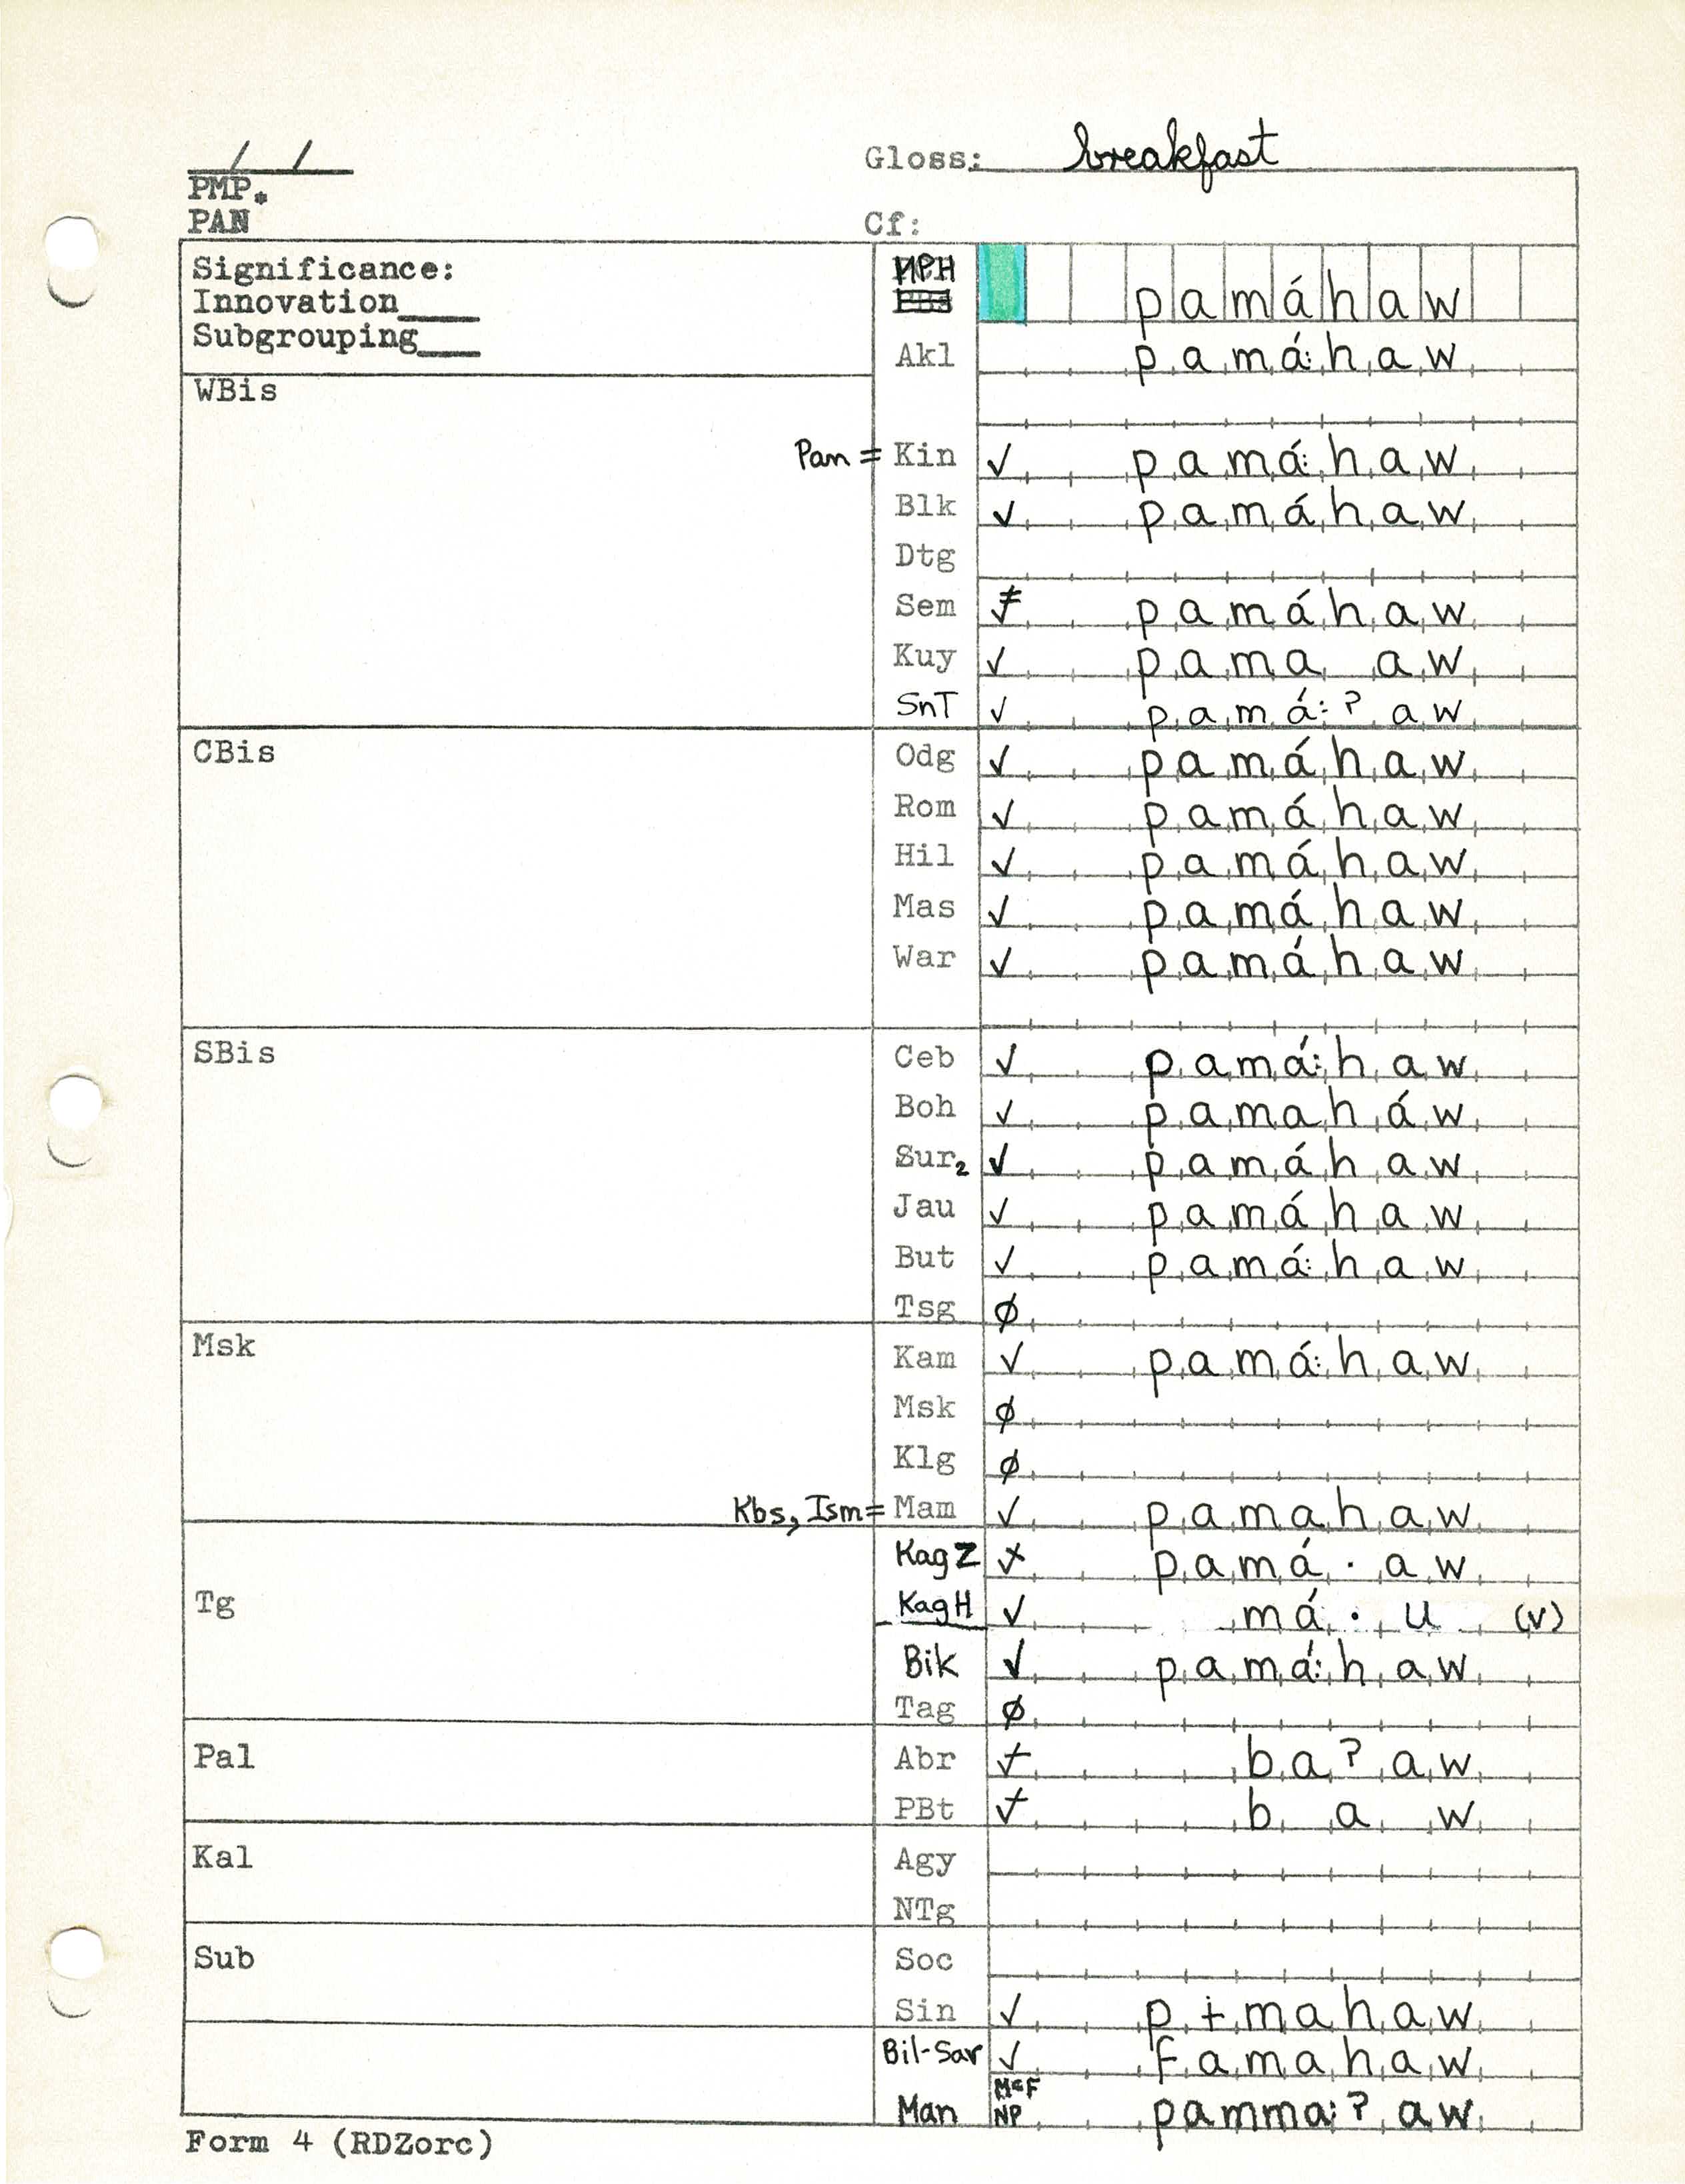 / /
Gloss: breakfast
PMP *
PAN
Cf:
Significance:
Innovation____
Subgrouping___
MPH pamáhaw
Akl pamá:haw
WBis
Pan = Kin ✓ pamá:haw
Blk ✓ pamáhaw
Dtg
Sem ≠ pamáhaw
Kuy ✓ pama aw
SnT ✓ pamá:ʔaw
CBis
Odg ✓ pamáhaw
Rom ✓ pamáhaw
Hil ✓ pamáhaw
Mas ✓ pamáhaw
War ✓ pamáhaw
SBis
Ceb ✓ pamá:haw
Boh ✓ pamaháw
Sur₂ ✓ pamáhaw
Jau ✓ pamáhaw
But ✓ pamá:haw
Tsg ∅
Msk
Kam ✓ pamá:haw
Msk ∅
Klg ∅
Kbs, Ism = Mam ✓ pamahaw
KagZ ✓ pamá·aw
Tg
KagH ✓ má·u (v)
Bik ✓ pamá:haw
Tag ∅
Pal
Abr ✓ baʔaw
PBt ✓ b a w
Kal
Agy
NTg
Sub
Soc
Sin ✓ pɨmahaw
Bil-Sar ✓ famahaw
Man McF NP pamma:ʔaw
Form 4 (RDZorc)